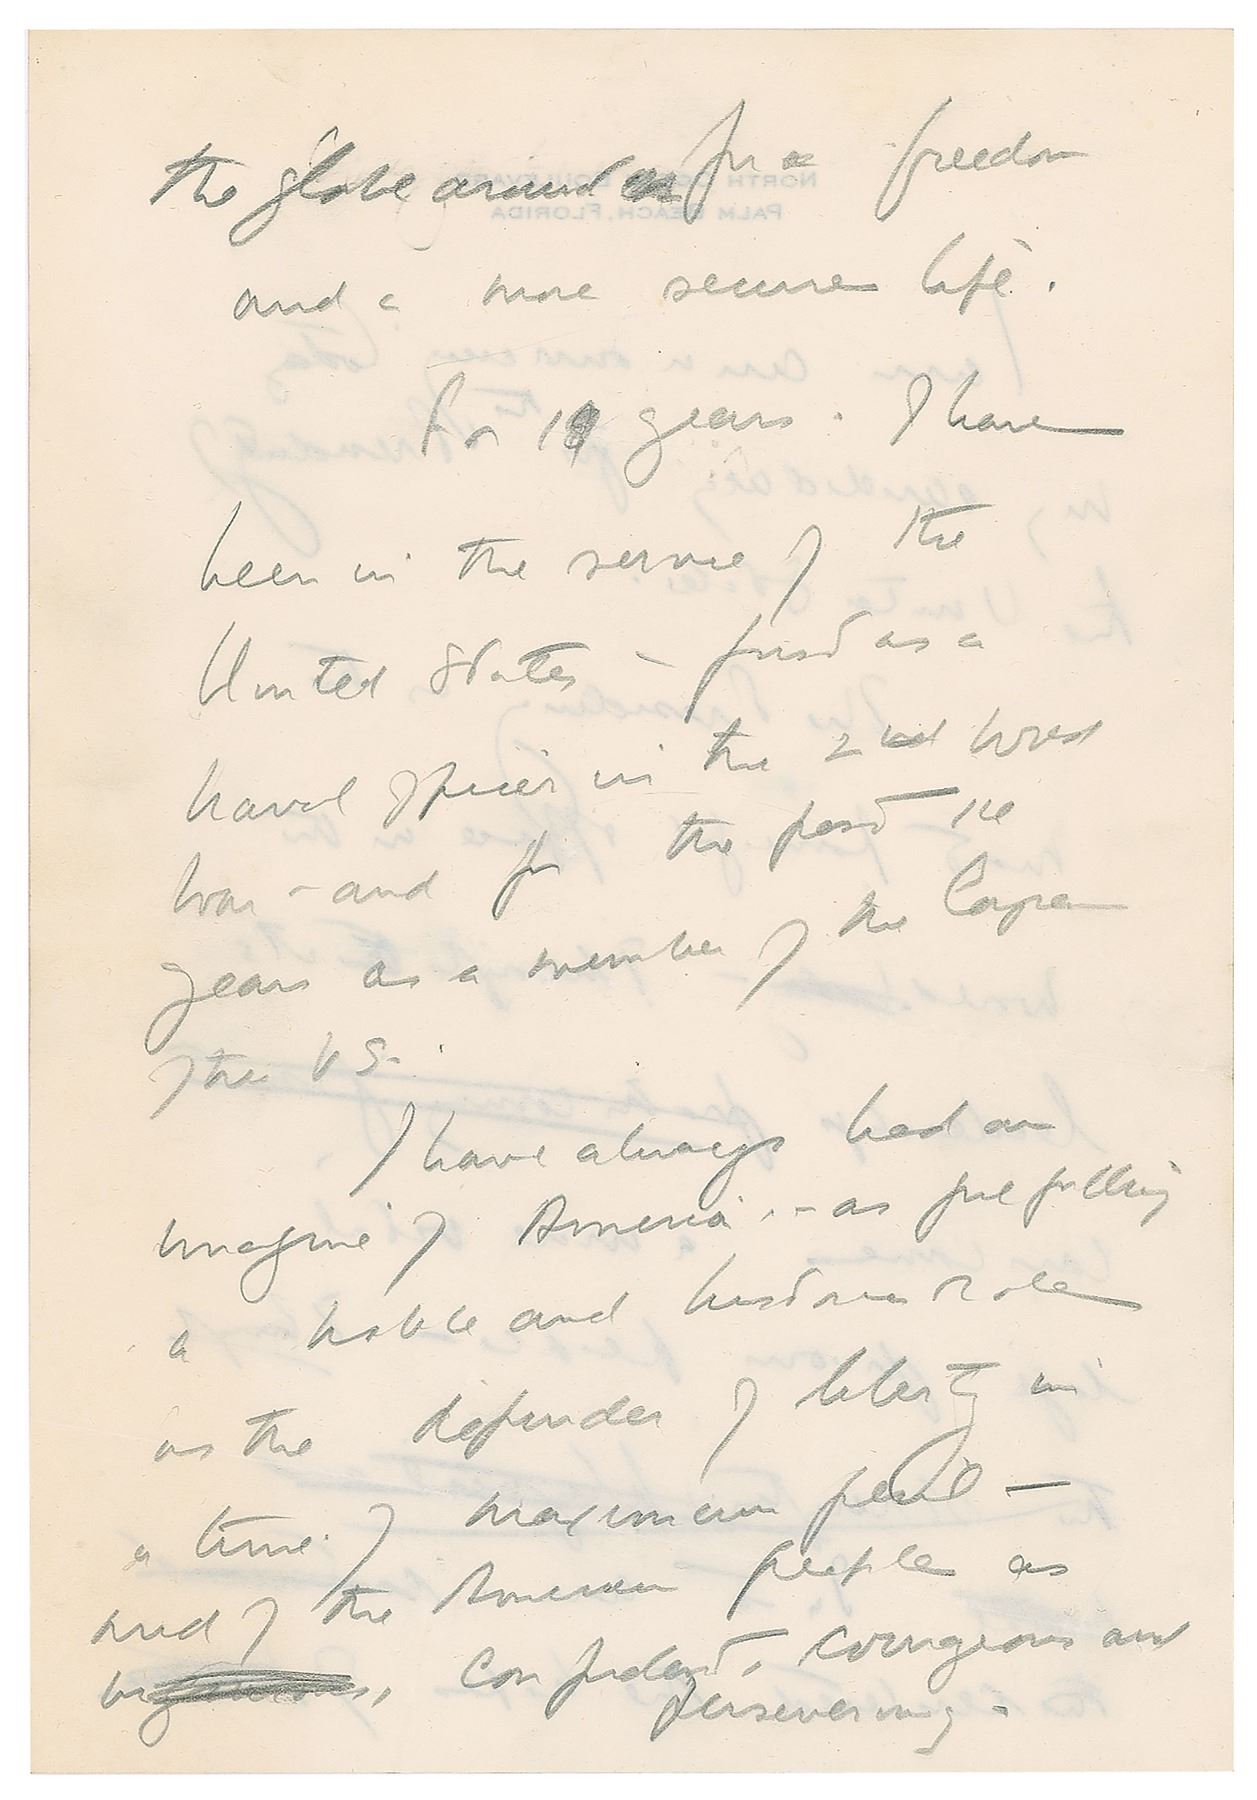 the globe around for a freedom
NORTH OCEAN BOULEVARD
PALM BEACH, FLORIDA
and a more secure life.
For 18 years. I have
been in the service of the
United States - first as a
naval officer in the 2nd World
War - and for the past 14
years as a member of the Congress
of the US.
I have always had an
image of America - as fulfilling
a noble and historic role
as the defender of liberty in
a time of maximum peril -
and of the American people as
confident, courageous and
persevering.